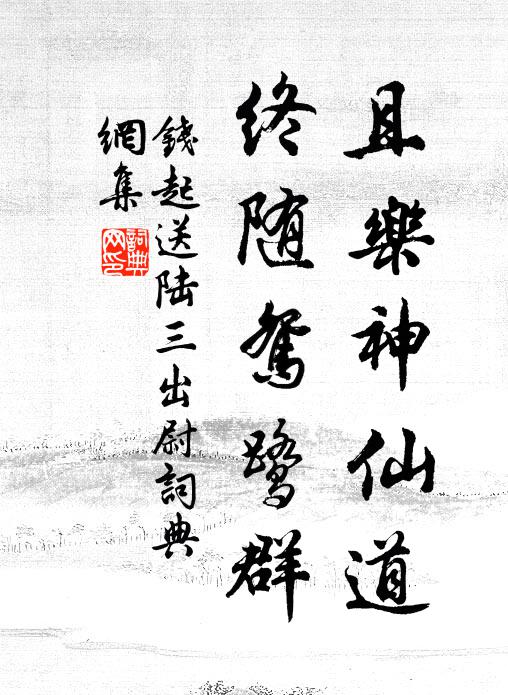 且樂神仙道
終随鴛鷺群
錢起送陆三出尉詞典
網集
詞典
网印